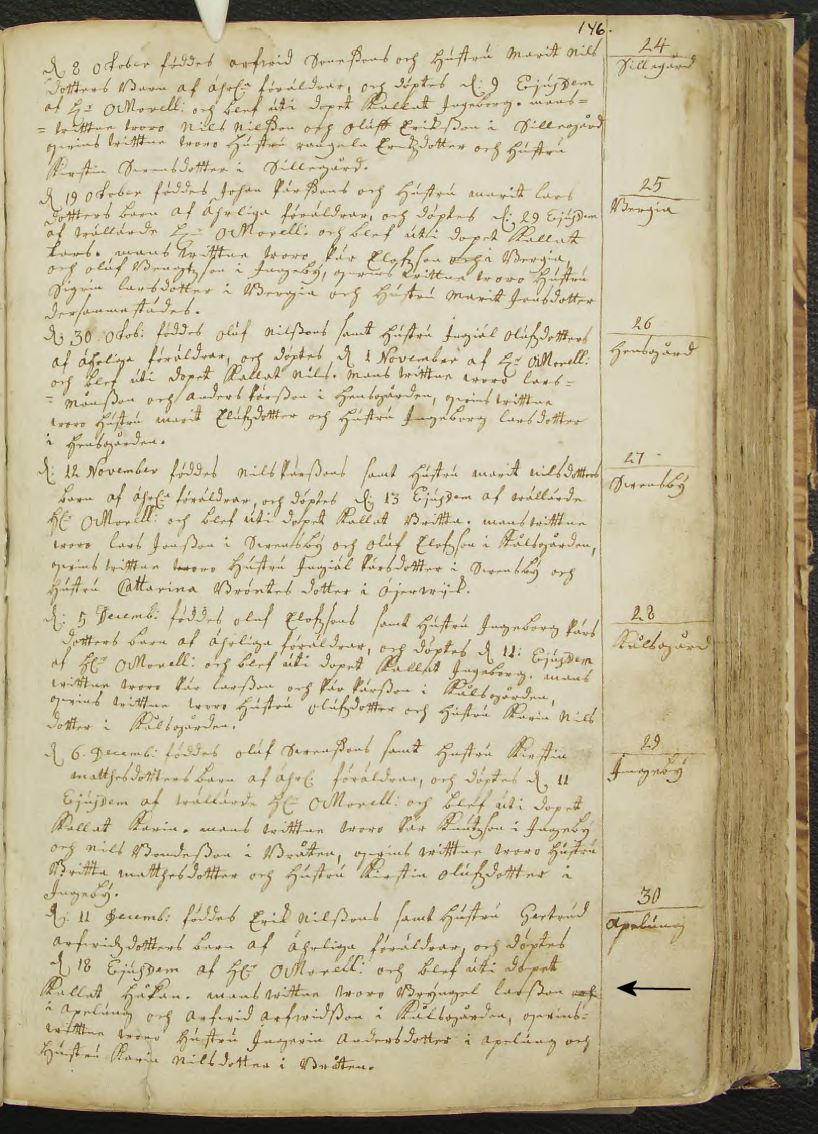 146.
D. 8 October föddes arfwid Swenßons och Hustru Marit Nils
dotters Barn af ährl. föräldrar, och döptes d. 9 Ejusdem
af Hr O Morell: och blef uti dopet Kallat Ingeborg. mans=
=wittne woro Nils Nilßon och Oluff Erikßon i Sillegård
qwins wittne woro Hustru Erichzdotter och Hustru
Kirstin Swensdotter i Sillegård.
24
Sillegård
D 19 October föddes Johan Pärßons och Hustru marit lars
dotters barn af ährliga föräldrar, och döptes d: 29 Ejusdem
af wällärde Hr O Morell: och blef uti dopet Kallat
Lars. mans wittne woro Pär Elofzson i Bergia,
och oluf Bengtzson i Ingeby, qwins wittne woro Hustru
Sigrin larsdotter i Bergia och Hustru Marit Jonsdotter
dersammastädes.
25
Bergia
D: 30 Octob: föddes oluf Nilßons samt Hustru Ingiäl Olufzdotters
af ährliga föräldrar, och döptes d. 1 November af Hr O Morell:
och blef uti dopet Kallat Nils. mans wittne woro lars=
=Månßon och anders Pärßon i Hensgården, qwins wittne
woro Hustru marit Elufzdotter och Hustru Ingeborg larsdotter
i Hensgården.
26
Hensgård
D: 12 November föddes Nils Pärßons samt Hustru marit nilsdotters
barn af ährl. föräldrar, och döptes d: 13 Ejusdem af wällärde
Hr O Morell: och blef uti dopet Kallat Britta. mans wittne
woro lars Jonßon i Swensby och oluf Elofzson i Kålsgården,
qwins wittne woro Hustru Ingiäl Pärsdotter i Swensby och
Hustru Cattarina Bröntes dotter i Öjerwijk.
27
Swensby
D: 5 Decemb: föddes oluf Elofzsons samt Hustru Ingeborg Pärs
dotters barn af ährliga föräldrar, och döptes d 11: Ejusdem
af Hr O Morell: och blef uti dopet Kallat Ingeborg. mans
wittne woro Pär larßon och Pär Pärßon i Kålsgården,
qwins wittne woro Hustru olufzdotter och Hustru Karin Nils
dotter i Kålsgården.
28
Kålsgård
D 6. Decemb: föddes oluf Swenßons samt Hustru Kirstin
matthesdotters barn af ährl: föräldrar, och döptes d 11
Ejusdem af wällärde Hr O Morell: och blef uti dopet
Kallat Karin. mans wittne woro Pär Knutzson i Ingeby
och nils Bondeßon i Bråten, qwins wittne woro Hustru
Britta matthesdotter och Hustru Kirstin olufzdotter i
Ingeby.
29
Ingeby
D: 11 Decemb: föddes Erik Nilßons samt Hustru Gertrud
arfwidzdotters barn af ährliga föräldrar, och döptes
d 18 Ejusdem af Hr O Morell: och blef uti dopet
Kallat Håkan. mans wittne woro Bryngel larßon
i apelung och arfwid arfwidßon i Kålsgården, qwins=
wittne woro Hustru Ingerin Andersdotter i apelung och
Hustru Karin Nilsdotter i Bråten.
30
apelung